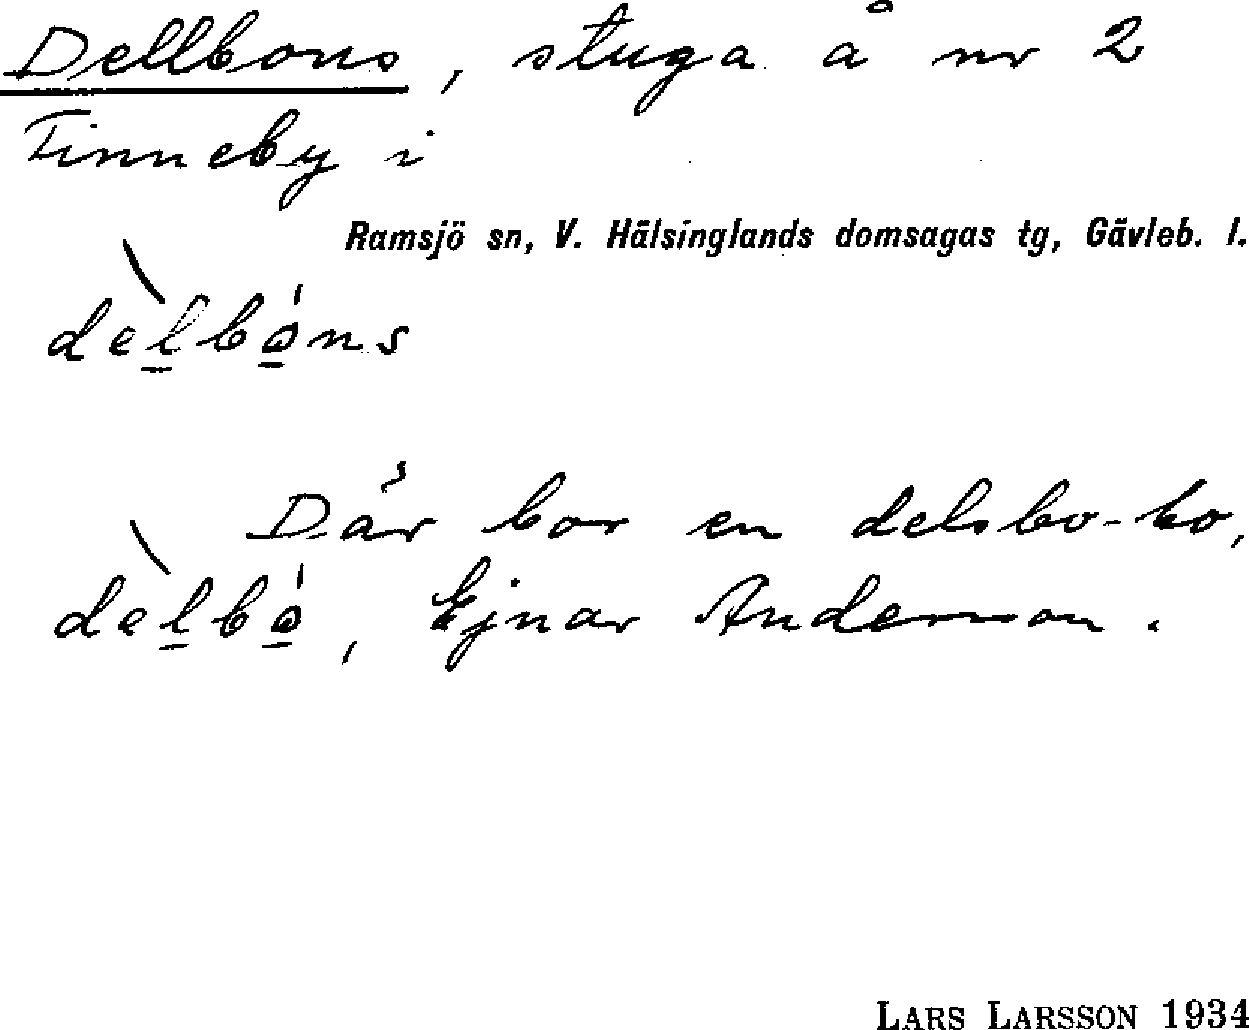 Dellbons, stuga å nr 2
Finneby i
Ramsjö sn, V. Hälsinglands domsagas tg, Gävleb. l.
dèl̲bó̲ns
Där bor en delsbo-bo,
dèl̲bó̲, Ejnar Anderson.
LARS LARSSON 1934